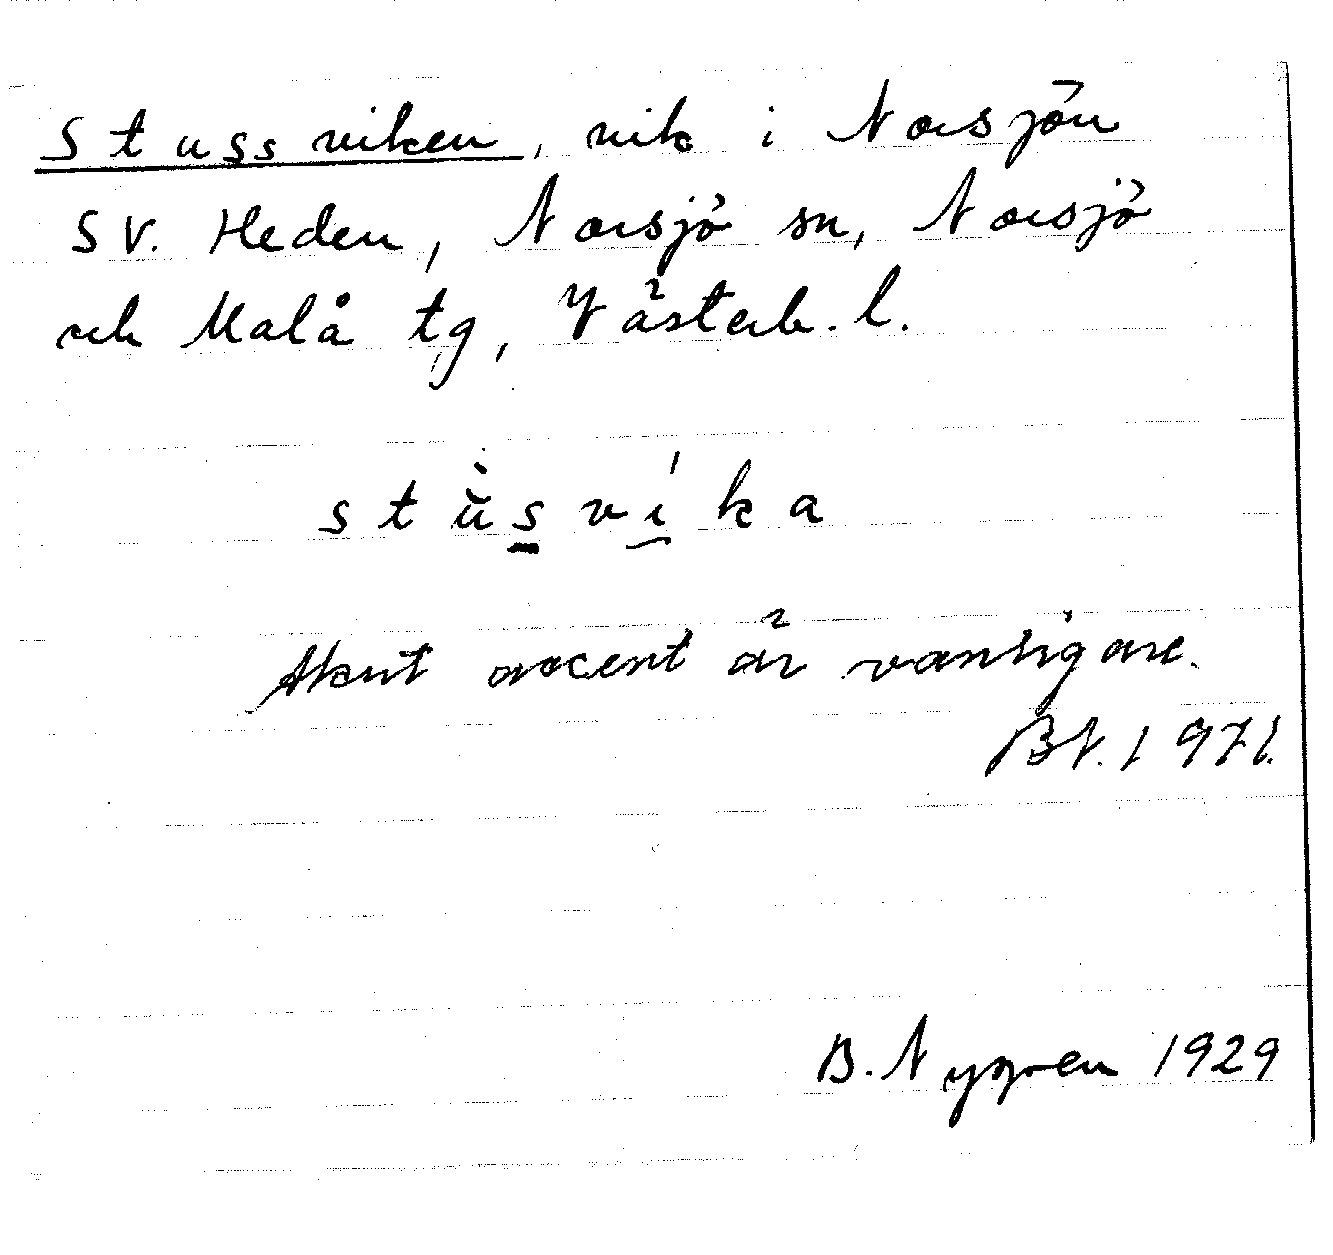 Stussviken, vik i Norsjön
SV. Heden, Norsjö sn, Norsjö
och Malå tg, Västerb. l.
stùsvíka
Akut accent är vanligare.
BN. 1971.
B. Nygren 1929